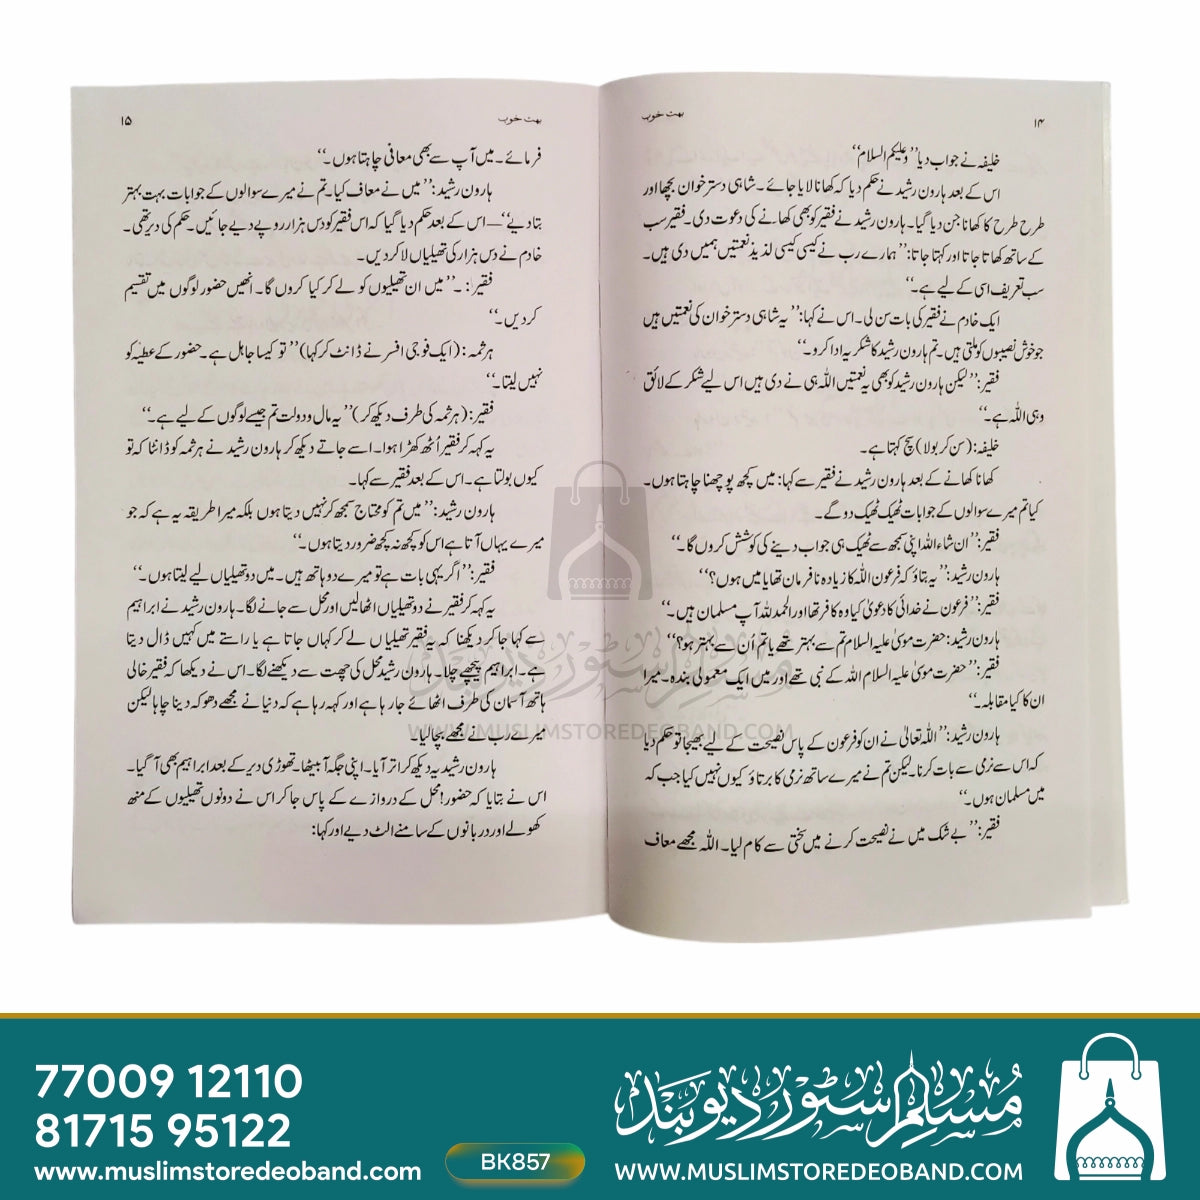 ۱۴
بہت خوب
خلیفہ نے جواب دیا ’’وعلیکم السلام‘‘
اس کے بعد ہارون رشید نے حکم دیا کہ کھانا لایا جائے۔ شاہی دسترخوان بچھا اور
طرح طرح کا کھانا چن دیا گیا۔ ہارون رشید نے فقیر کو بھی کھانے کی دعوت دی۔ فقیر سب
کے ساتھ کھاتا جاتا اور کہتا جاتا: ’’ہمارے رب نے کیسی کیسی لذیذ نعمتیں ہمیں دی ہیں۔
سب تعریف اسی کے لیے ہے۔‘‘
ایک خادم نے فقیر کی بات سن لی۔ اس نے کہا: ’’یہ شاہی دسترخوان کی نعمتیں ہیں
جو خوش نصیبوں کو ملتی ہیں۔ تم ہارون رشید کا شکریہ ادا کرو۔‘‘
فقیر: ’’لیکن ہارون رشید کو بھی یہ نعمتیں اللہ ہی نے دی ہیں اس لیے شکر کے لائق
وہی اللہ ہے۔‘‘
خلیفہ: (سن کر بولا) سچ کہتا ہے۔
کھانا کھانے کے بعد ہارون رشید نے فقیر سے کہا: میں کچھ پوچھنا چاہتا ہوں۔
کیا تم میرے سوالوں کے جوابات ٹھیک ٹھیک دو گے۔
فقیر: ’’ان شاء اللہ اپنی سمجھ سے ٹھیک ہی جواب دینے کی کوشش کروں گا۔‘‘
ہارون رشید: ’’یہ بتاؤ کہ فرعون اللہ کا زیادہ نافرمان تھا یا میں ہوں؟‘‘
فقیر: ’’فرعون نے خدائی کا دعویٰ کیا وہ کافر تھا اور الحمدللہ آپ مسلمان ہیں۔‘‘
ہارون رشید: حضرت موسیٰ علیہ السلام تم سے بہتر تھے یا تم اُن سے بہتر ہو؟‘‘
فقیر: ’’حضرت موسیٰ علیہ السلام اللہ کے نبی تھے اور میں ایک معمولی بندہ۔ میرا
ان کا کیا مقابلہ۔‘‘
ہارون رشید: ’’اللہ تعالیٰ نے ان کو فرعون کے پاس نصیحت کے لیے بھیجا تو حکم دیا
کہ اس سے نرمی سے بات کرنا۔ لیکن تم نے میرے ساتھ نرمی کا برتاؤ کیوں نہیں کیا جب کہ
میں مسلمان ہوں۔‘‘
فقیر: ’’بے شک میں نے نصیحت کرنے میں سختی سے کام لیا۔ اللہ مجھے معاف
بہت خوب
۱۵
فرمائے۔ میں آپ سے بھی معافی چاہتا ہوں۔‘‘
ہارون رشید: ’’میں نے معاف کیا۔ تم نے میرے سوالوں کے جوابات بہت بہتر
بتا دیے‘‘— اس کے بعد حکم دیا گیا کہ اس فقیر کو دس ہزار روپے دیے جائیں۔ حکم کی دیر تھی۔
خادم نے دس ہزار کی تھیلیاں لا کر دیں۔
فقیر: ۔’’میں ان تھیلیوں کو لے کر کیا کروں گا۔ انھیں حضور لوگوں میں تقسیم
کر دیں۔‘‘
ہرثمہ: (ایک فوجی افسر نے ڈانٹ کر کہا) ’’تو کیسا جاہل ہے۔ حضور کے عطیہ کو
نہیں لیتا۔‘‘
فقیر: (ہرثمہ کی طرف دیکھ کر) ’’یہ مال و دولت تم جیسے لوگوں کے لیے ہے۔‘‘
یہ کہہ کر فقیر اُٹھ کھڑا ہوا۔ اسے جاتے دیکھ کر ہارون رشید نے ہرثمہ کو ڈانٹا کہ تو
کیوں بولتا ہے۔ اس کے بعد فقیر سے کہا۔
ہارون رشید: ’’میں تم کو محتاج سمجھ کر نہیں دیتا ہوں بلکہ میرا طریقہ یہ ہے کہ جو
میرے یہاں آتا ہے اس کو کچھ نہ کچھ ضرور دیتا ہوں۔‘‘
فقیر: ’’اگر یہی بات ہے تو میرے دو ہاتھ ہیں۔ میں دو تھیلیاں لیے لیتا ہوں۔‘‘
یہ کہہ کر فقیر نے دو تھیلیاں اٹھا لیں اور محل سے جانے لگا۔ ہارون رشید نے ابراہیم
سے کہا جا کر دیکھنا کہ یہ فقیر تھیلیاں لے کر کہاں جاتا ہے یا راستے میں کہیں ڈال دیتا
ہے۔ ابراہیم پیچھے چلا۔ ہارون رشید محل کی چھت سے دیکھنے لگا۔ اس نے دیکھا کہ فقیر خالی
ہاتھ آسمان کی طرف اٹھائے جا رہا ہے اور کہہ رہا ہے کہ دنیا نے مجھے دھوکہ دینا چاہا لیکن
میرے رب نے مجھے بچا لیا۔
ہارون رشید یہ دیکھ کر اتر آیا۔ اپنی جگہ آ بیٹھا۔ تھوڑی دیر کے بعد ابراہیم بھی آ گیا۔
اس نے بتایا کہ حضور! محل کے دروازے کے پاس جا کر اس نے دونوں تھیلیوں کے منھ
کھولے اور دربانوں کے سامنے الٹ دیے اور کہا:
مسلم سٹور دیوبند
WWW.MUSLIMSTOREDEOBAND.COM
77009 12110
81715 95122
www.muslimstoredeoband.com
BK857
مسلم سٹور دیوبند
WWW.MUSLIMSTOREDEOBAND.COM